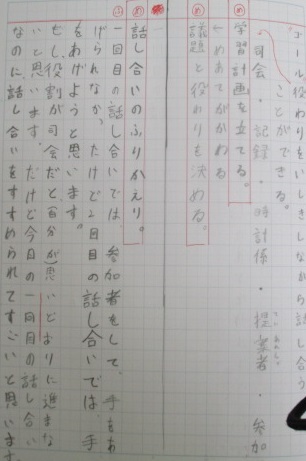 ゴール
役わりをいしきしながら話し合う
ことができる。
・司会・記録・時計係・提案者・参加
ていあん
め
学習計画を立てる。
←めあてがわかる
め
議題と役わりを決める。
め
話し合いのふりかえり。
ふ
一回目の話し合いでは、参加者をして、手をあ
げられなか、たけど2回目の話し合いでは、手
をあげようと思います。
もし、役割が司会だと自分が思いどおりに進まな
いと思います。だけど今日の一回目の話し合い
なのに話し合いをすすめられてすごいと思います